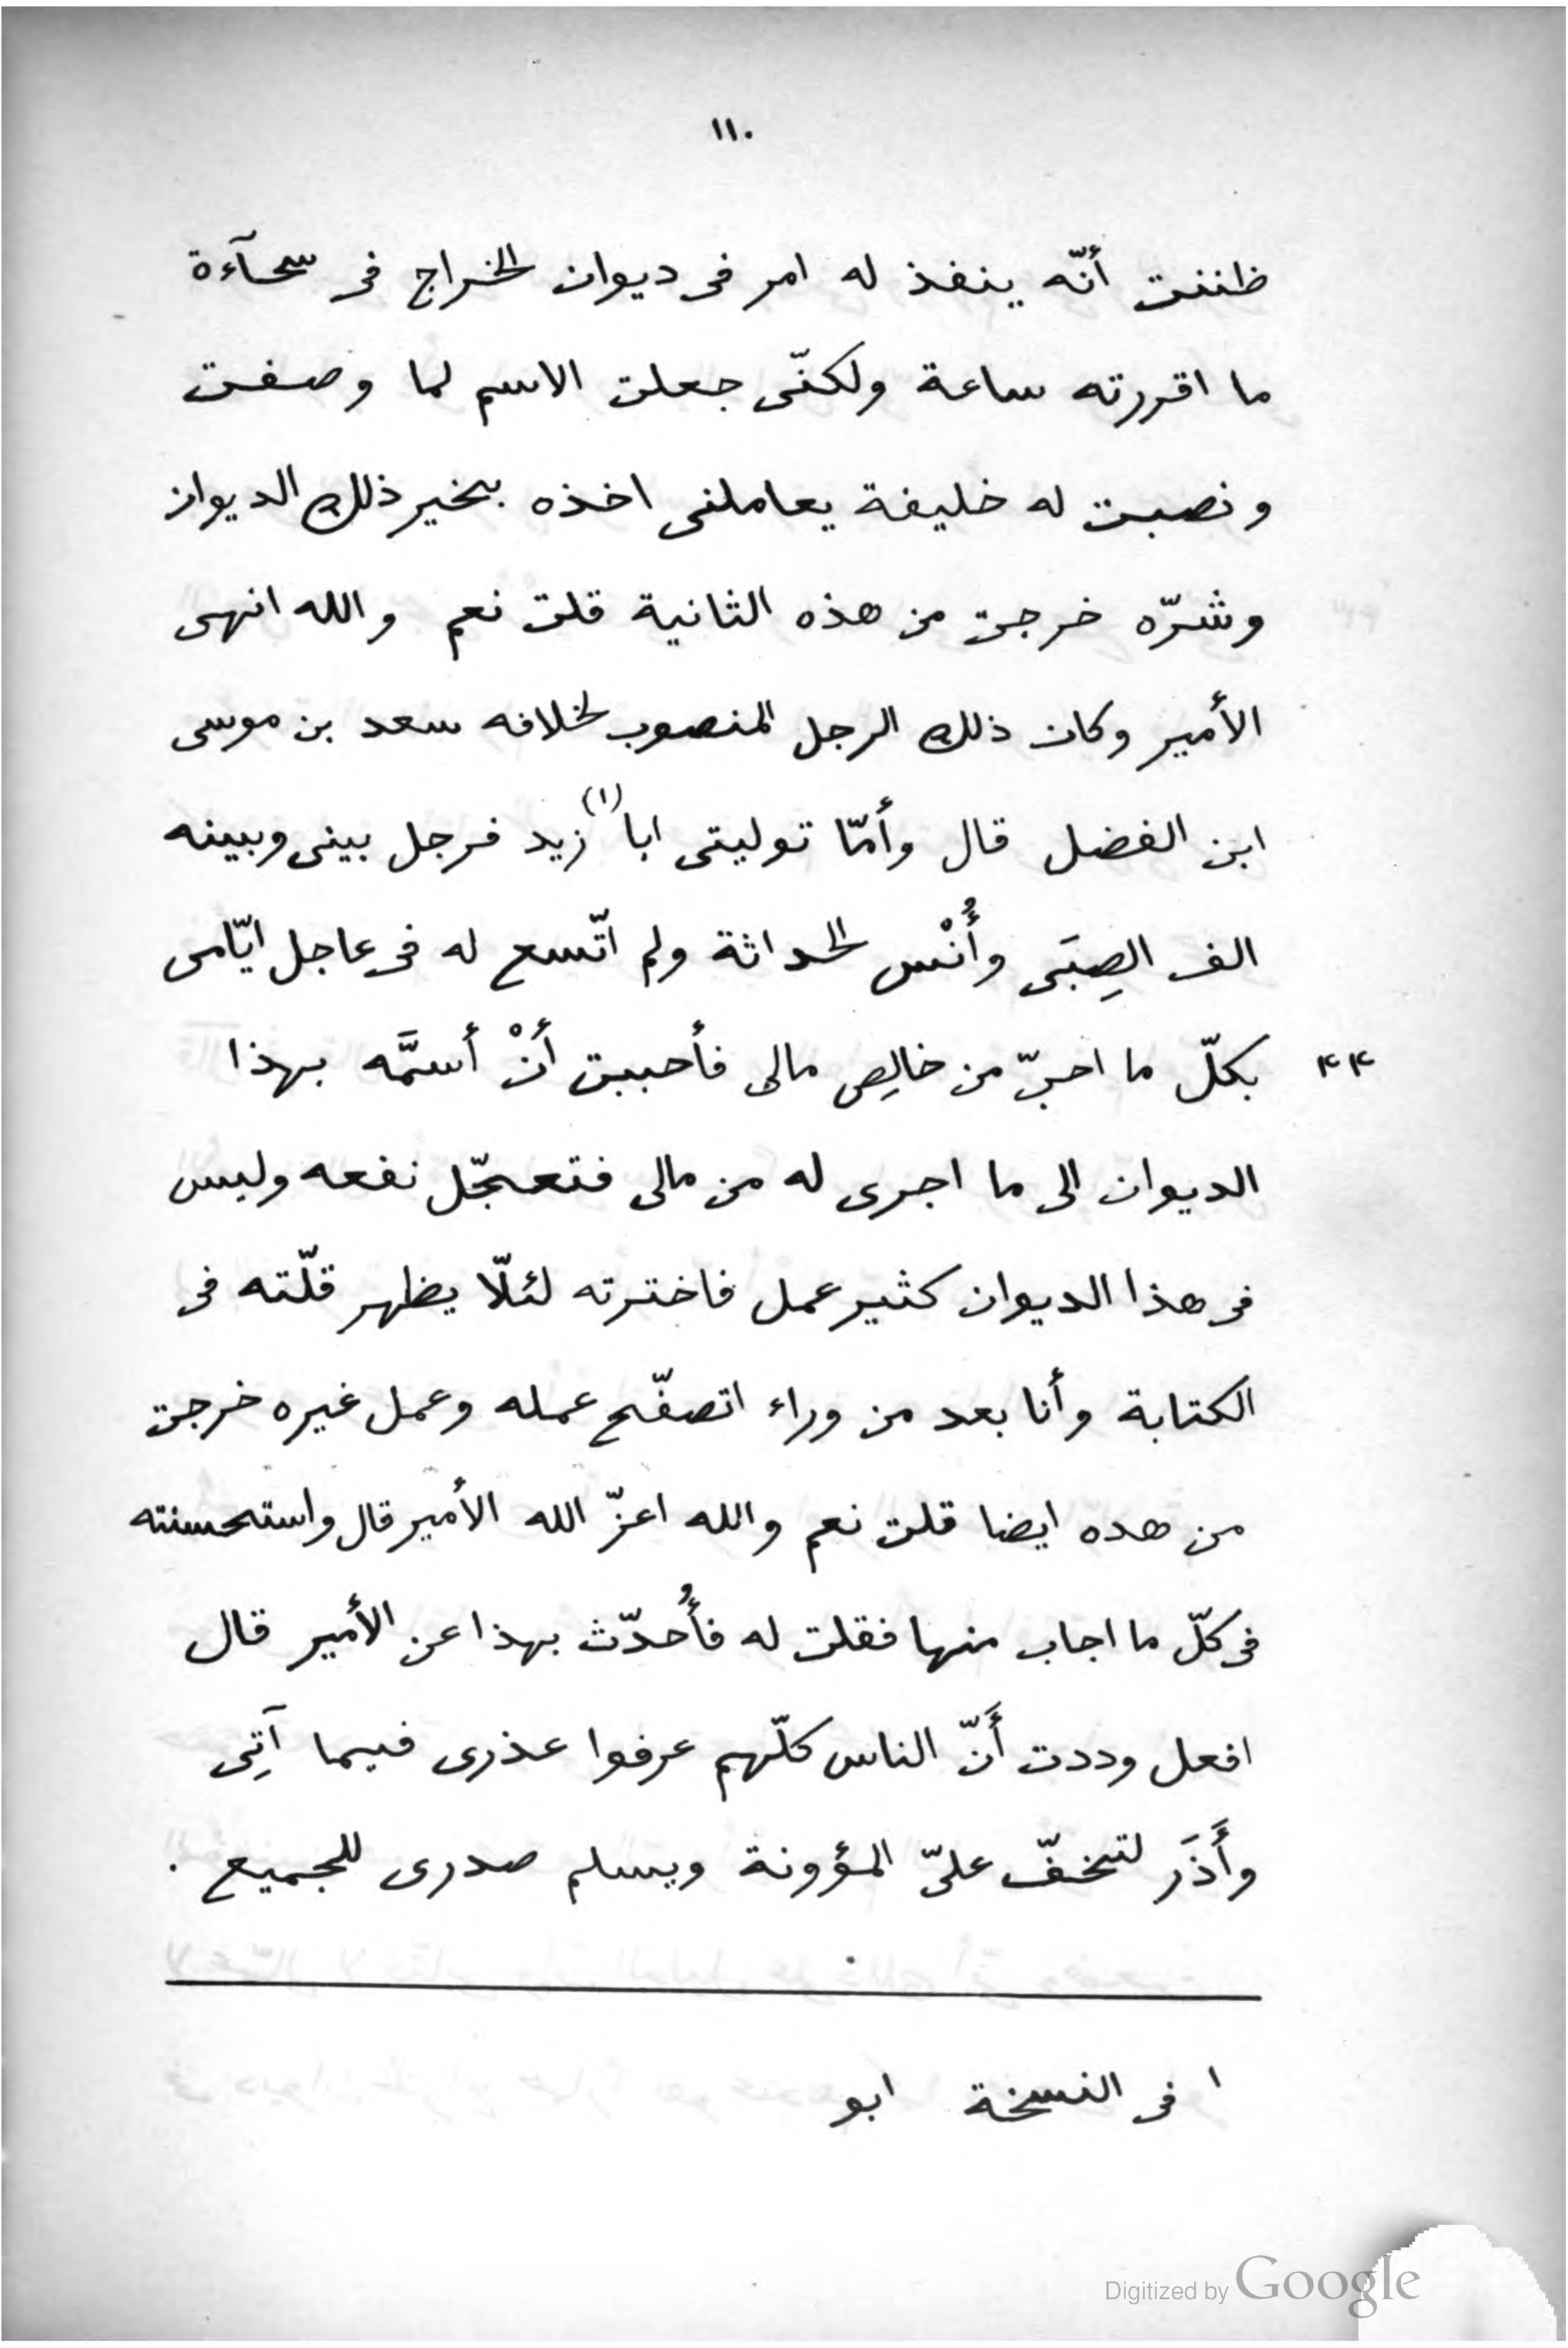 ١١٠
ظننت أنّه ينفذ له امر فى ديوان الخراج فى سحآءة
ما اقررته ساعة ولكنّى جعلت الاسم لما وصفت
ونصبت له خليفة يعاملنى اخذه بخير ذلك الديوان
وشرّه خرجت من هذه الثانية قلت نعم والله ايها
الأمير وكان ذلك الرجل المنصوب لخلافه سعد بن موسى
ابن الفضل قال وأمّا توليتى ابا (١) زيد فرجل بينى وبينه
الف الصِبَى وأُنْس الحداثة ولم اتّسع له فى عاجل ايّامى
٤٤ بكلّ ما احبّ من خالِص مالى فأحببت أنْ أسمَّه بهذا
الديوان الى ما اجرى له من مالى فتعجّل نفعه وليس
فى هذا الديوان كثير عمل فاخترته لئلّا يظهر قلّته فى
الكتابة وأنا بعد من وراء اتصفّح عمله وعمل غيره خرجت
من هده ايضا قلت نعم والله اعزّ الله الأمير قال واستحسنته
فى كلّ ما اجاب منها فقلت له فأُحدّث بهذا عن الأمير قال
افعل وددت أَنّ الناس كلّهم عرفوا عذرى فيما آتِى
وأَذَر لتخفّ علىّ المؤونة ويسلم صدرى للجميع .
١ فى النسخة ابو
Digitized by Google